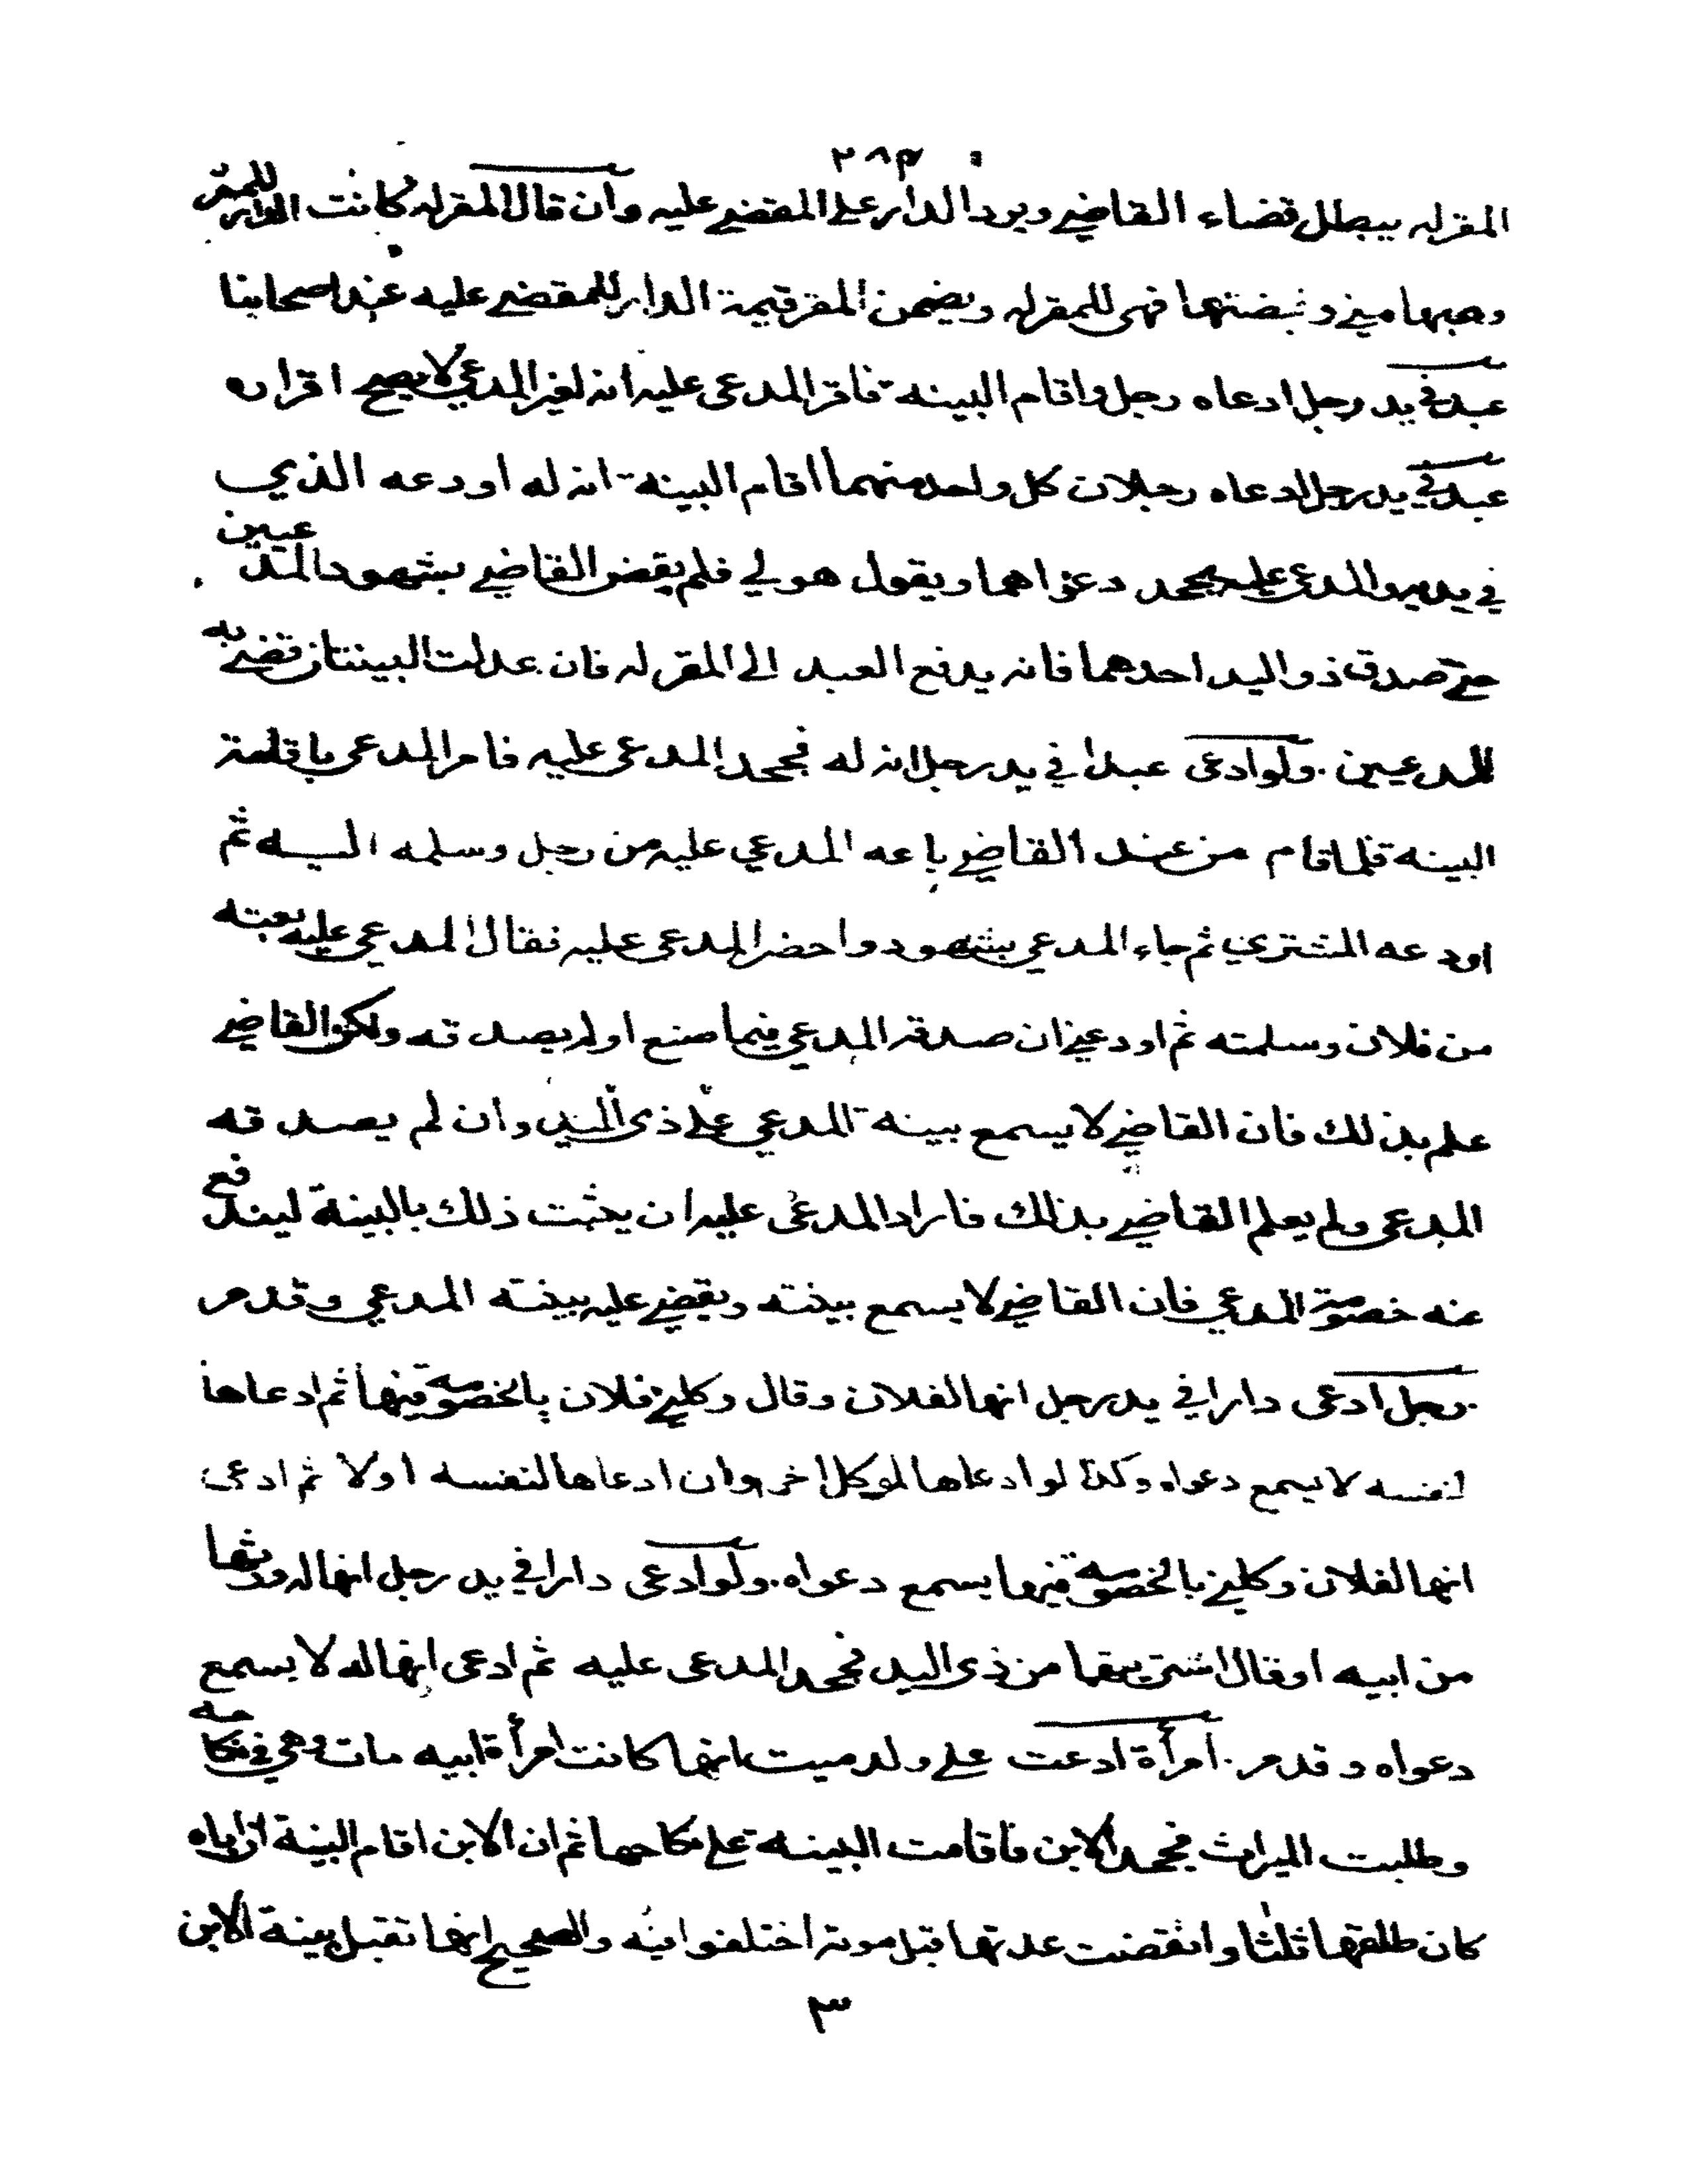 ٢٨٣
المقر له يبطل قضاء القاضي ويرد الدار على المقضي عليه وان قال المقر له كانت الدار للمقر
وهبها مني وقبضتها فهي للمقر له ويضمن المقر قيمة الدار للمقضي عليه عند اصحابنا
عبد في يد رجل ادعاه رجل واقام البينة فاقر المدعى عليه انه لغير المدعي لا يصح اقراره
عبد في يد رجل ادعاه رجلان كل واحد منهما اقام البينة انه له اودعه الذي
في يديه والمدعى عليه يجحد دعواهما ويقول هو لي فلم يقض القاضي بشهود المدعيين
حتى صدق ذو اليد احدهما فانه يدفع العبد الى المقر له فان عدلت البينتان قضي به
للمدعيين . ولو ادعى عبدا في يد رجل انه له فجحد المدعى عليه فامر المدعي باقامة
البينة فلما قام من عند القاضي باعه المدعي عليه من رجل وسلمه اليه ثم
اودعه المشتري ثم جاء المدعي بشهود واحضر المدعى عليه فقال المدعي عليه بعته
من فلان وسلمته ثم اودعني ان صدقه المدعي فيما صنع او لم يصدقه ولكن القاضي
علم بذلك فان القاضي لا يسمع بينة المدعي على ذي اليد وان لم يصدقه
المدعي ولم يعلم القاضي بذلك فاراد المدعى عليه ان يثبت ذلك بالبينة ليندفع
عنه خصومة المدعي فان القاضي لا يسمع بينته ويقضي عليه ببينته المدعي وقد مر
رجل ادعى دارا في يد رجل انها لفلان وقال وكلني فلان بالخصومة فيها ثم ادعاها
لنفسه لا يسمع دعواه وكذا لو ادعاها لموكل اخر وان ادعاها لنفسه اولا ثم ادعى
انها لفلان وكلني بالخصومة فيها يسمع دعواه . ولو ادعى دارا في يد رجل انها له ورثها
من ابيه او قال اشتريتها من ذي اليد فجحد المدعى عليه ثم ادعى انها له لا يسمع
دعواه وقد مر . امرأة ادعت على ولد ميت انها كانت امرأة ابيه مات وهي في نكاحه
وطلبت الميراث فجحد الابن فاقامت البينة على نكاحها ثم ان الابن اقام البينة ان اباه
كان طلقها ثلثا وانقضت عدتها قبل موته اختلفوا فيه والصحيح انها تقبل بينة الابن
٣